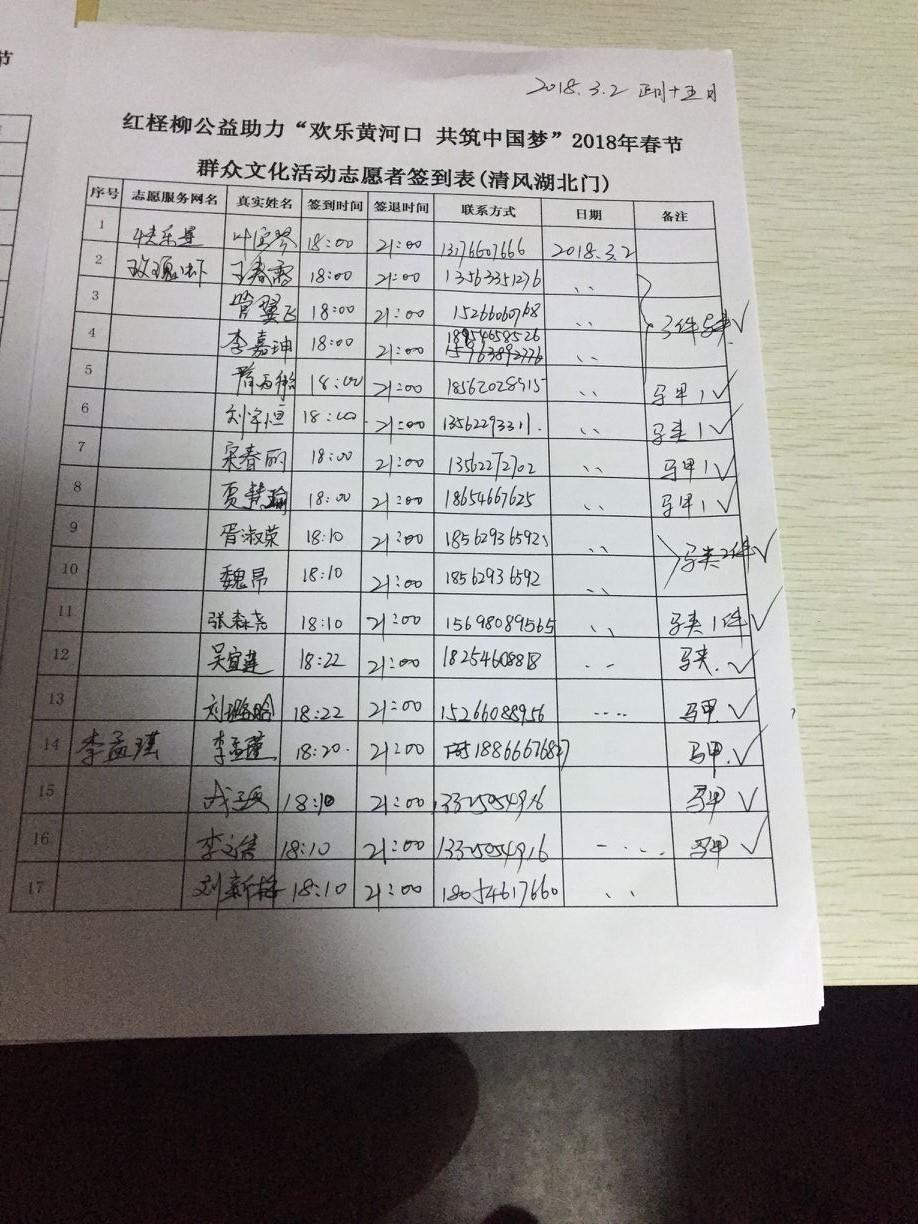 节
2018.3.2 正月十五日
红柽柳公益助力“欢乐黄河口 共筑中国梦”2018年春节
群众文化活动志愿者签到表(清风湖北门)
序号 志愿服务网名 真实姓名 签到时间 签退时间 联系方式 日期 备注
1 快乐星 18:00 21:00 13176607666 2018.3.2
2 玫瑰 王春霞 18:00 21:00 13563351276 、、
3 管翼飞 18:00 21:00 15266060768 、、 3件马夹√
4 李嘉珅 18:00 21:00 18954658526 、、
5 18:00 21:00 18562028515 、、 马甲1√
6 刘宇恒 18:00. 21:00 13562293311. 、、 马夹1√
7 宋春丽 18:00 21:00 13562272702 、、 马甲1√
8 贾慧瑜 18:00 21:00 18654667625 、、 马甲1√
9 胥淑荣 18:10 21:00 18562936592 、、 马夹2件√
10 魏昂 18:10 21:00 18562936592 、、
11 张森尧 18:10 21:00 15698089565 、、 马夹1件√
12 吴宜莲 18:22 21:00 18254608818 -- 马夹.√
13 刘璐晗 18:22 21:00 15266088956 ---- 马甲.√
14 李孟瑾 李孟瑾 18:20. 21:00 马甲.√
15 18:10 21:00 13325054916 马甲√
16 李文倩 18:10 21:00 13325054916 -... 马甲√
17 刘新梅 18:10 21:00 18054617660 、、